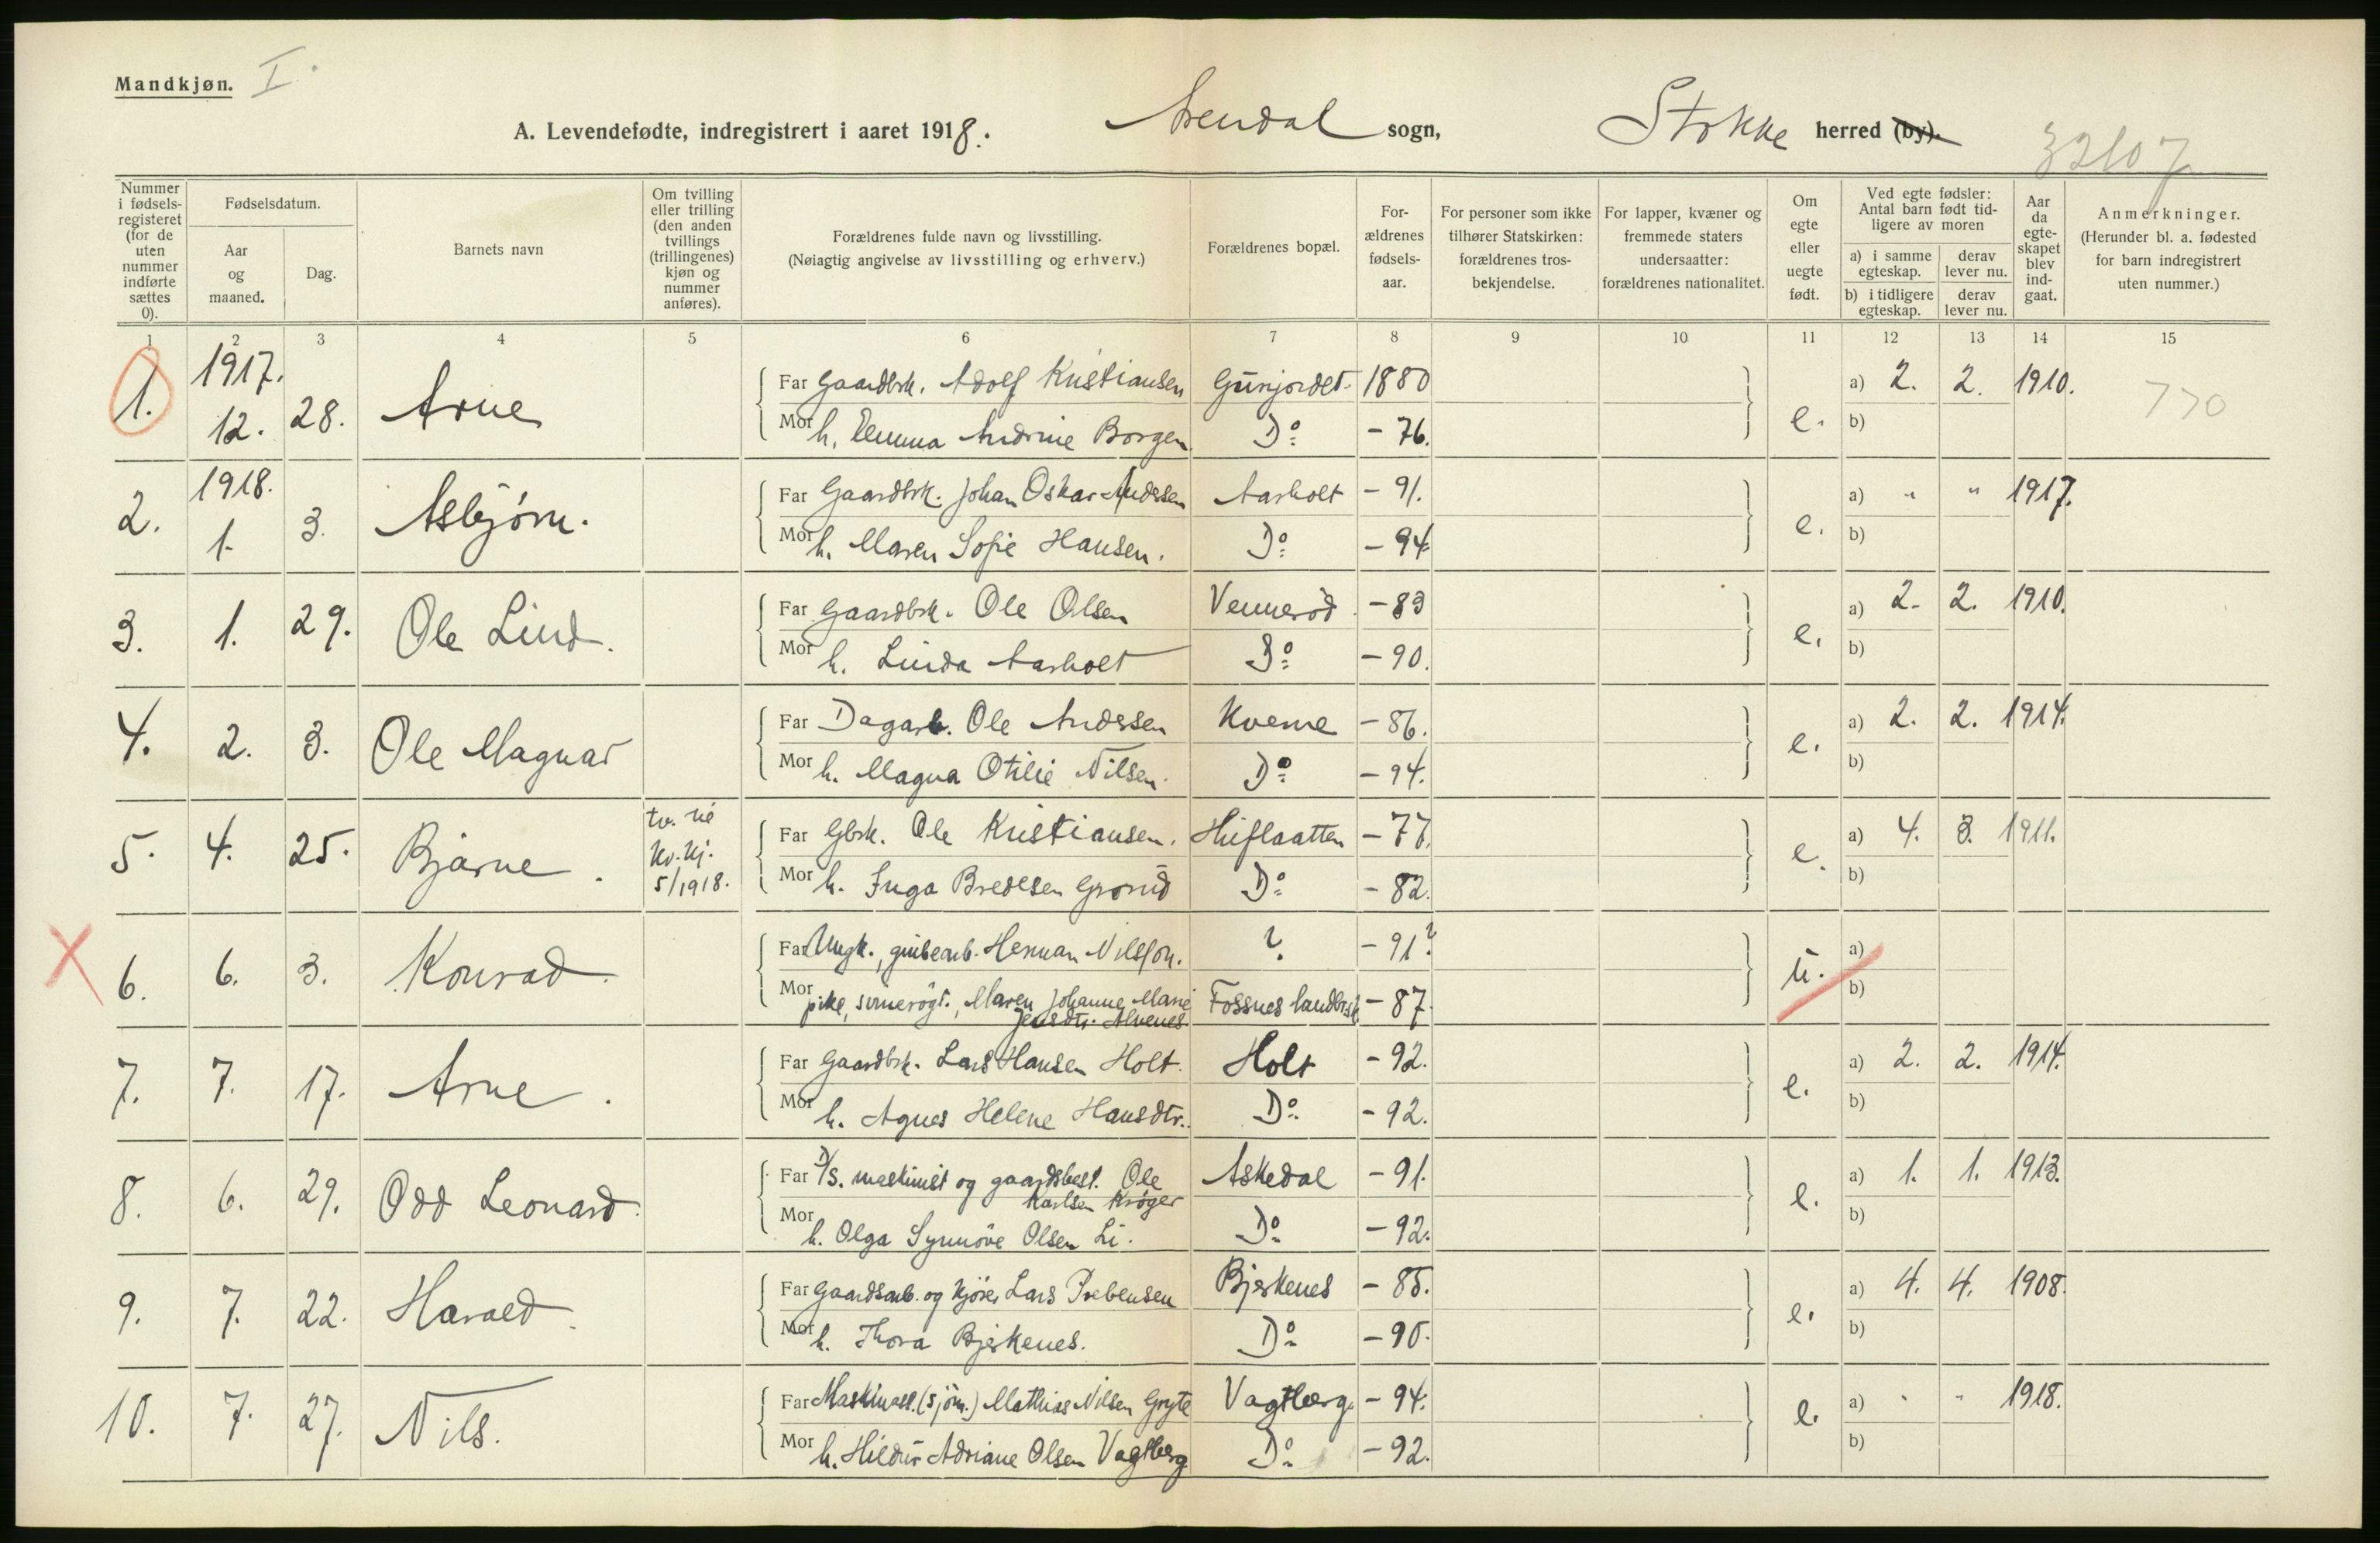 Mandkjøn. I.
A. Levendefødte, indregistrert i aaret 1918. Arendal sogn, Stokke herred (by).
32107
Nummer i fødselsregisteret (for de uten nummer indførte sættes 0).
Fødselsdatum.
Aar og maaned.
Dag.
Barnets navn
Om tvilling eller trilling (den anden tvillings (trillingenes) kjøn og nummer anføres).
Forældrenes fulde navn og livsstilling.
(Nøiagtig angivelse av livsstilling og erhverv.)
Forældrenes bopæl.
Forældrenes fødselsaar.
For personer som ikke tilhører Statskirken: forældrenes trosbekjendelse.
For lapper, kvæner og fremmede staters undersaatter: forældrenes nationalitet.
Om egte eller uegte født.
Ved egte fødsler: Antal barn født tidligere av moren
a) i samme egteskap. derav lever nu.
b) i tidligere egteskap. derav lever nu.
Aar da egteskapet blev indgaat.
Anmerkninger.
(Herunder bl. a. fødested for barn indregistrert uten nummer.)
1 2 3 4 5 6 7 8 9 10 11 12 13 14 15
1. 1917. 12. 28. Arne Far Gaardbrk. Adolf Kristiansen Gunjordet 1880 e. a) 2. 2. 1910. 770
Mor h. Emma Andrine Borgen Do - 76. b)
2. 1918. 1. 3. Asbjørn. Far Gaardbrk. Johan Oskar Andssen Aasholt - 91. e. a) " " 1917.
Mor h. Maren Sofie Hansen. Do - 94 b)
3. 1. 29. Ole Lind. Far Gaardbrk. Ole Olsen Vennerød - 83 e. a) 2. 2. 1910.
Mor h. Linda Aasholt Do - 90. b)
4. 2. 3. Ole Magnar Far Dagarb. Ole Andssen Kverne - 86. e. a) 2. 2. 1914.
Mor h. Magna Otilie Nilsen. Do - 94. b)
5. 4. 25. Bjarne. tv. m kv.kj. 5/1918. Far Gbrk. Ole Kristiansen. Huflaatten - 77. e. a) 4. 3. 1911.
Mor h. Inga Bredesen Grorud Do - 82. b)
6. 6. 3. Konrad Far Ungk., grubearb. Herman Nilsson. ? - 91? u. a)
Mor pike, svinerøgt., Maren Johanne Marie Jensdtr. Alvenes Fossnes landbrsk. - 87. b)
7. 7. 17. Arne. Far Gaardbrk. Lars Hansen Holt. Holt - 92. e. a) 2. 2. 1914.
Mor h. Agnes Helene Hansdtr. Do - 92. b)
8. 6. 29. Odd Leonard. Far D/S. maskinist og gaardsbest. Ole Karlsen Krøger Askedal - 91. e. a) 1. 1. 1913.
Mor h. Olga Synnøve Olsen Li. Do - 92. b)
9. 7. 22. Harald. Far Gaardsarb. og kjører Lars Prebensen Bjerkenes - 85. e. a) 4. 4. 1908.
Mor h. Thora Bjerkenes. Do - 90. b)
10. 7. 27. Nils. Far Maskinass. (sjøm.) Mathias Nilsen Gryte Vagtberg - 94. e. a) " " 1918.
Mor h. Hildur Adriane Olsen Vagtberg Do - 92. b)